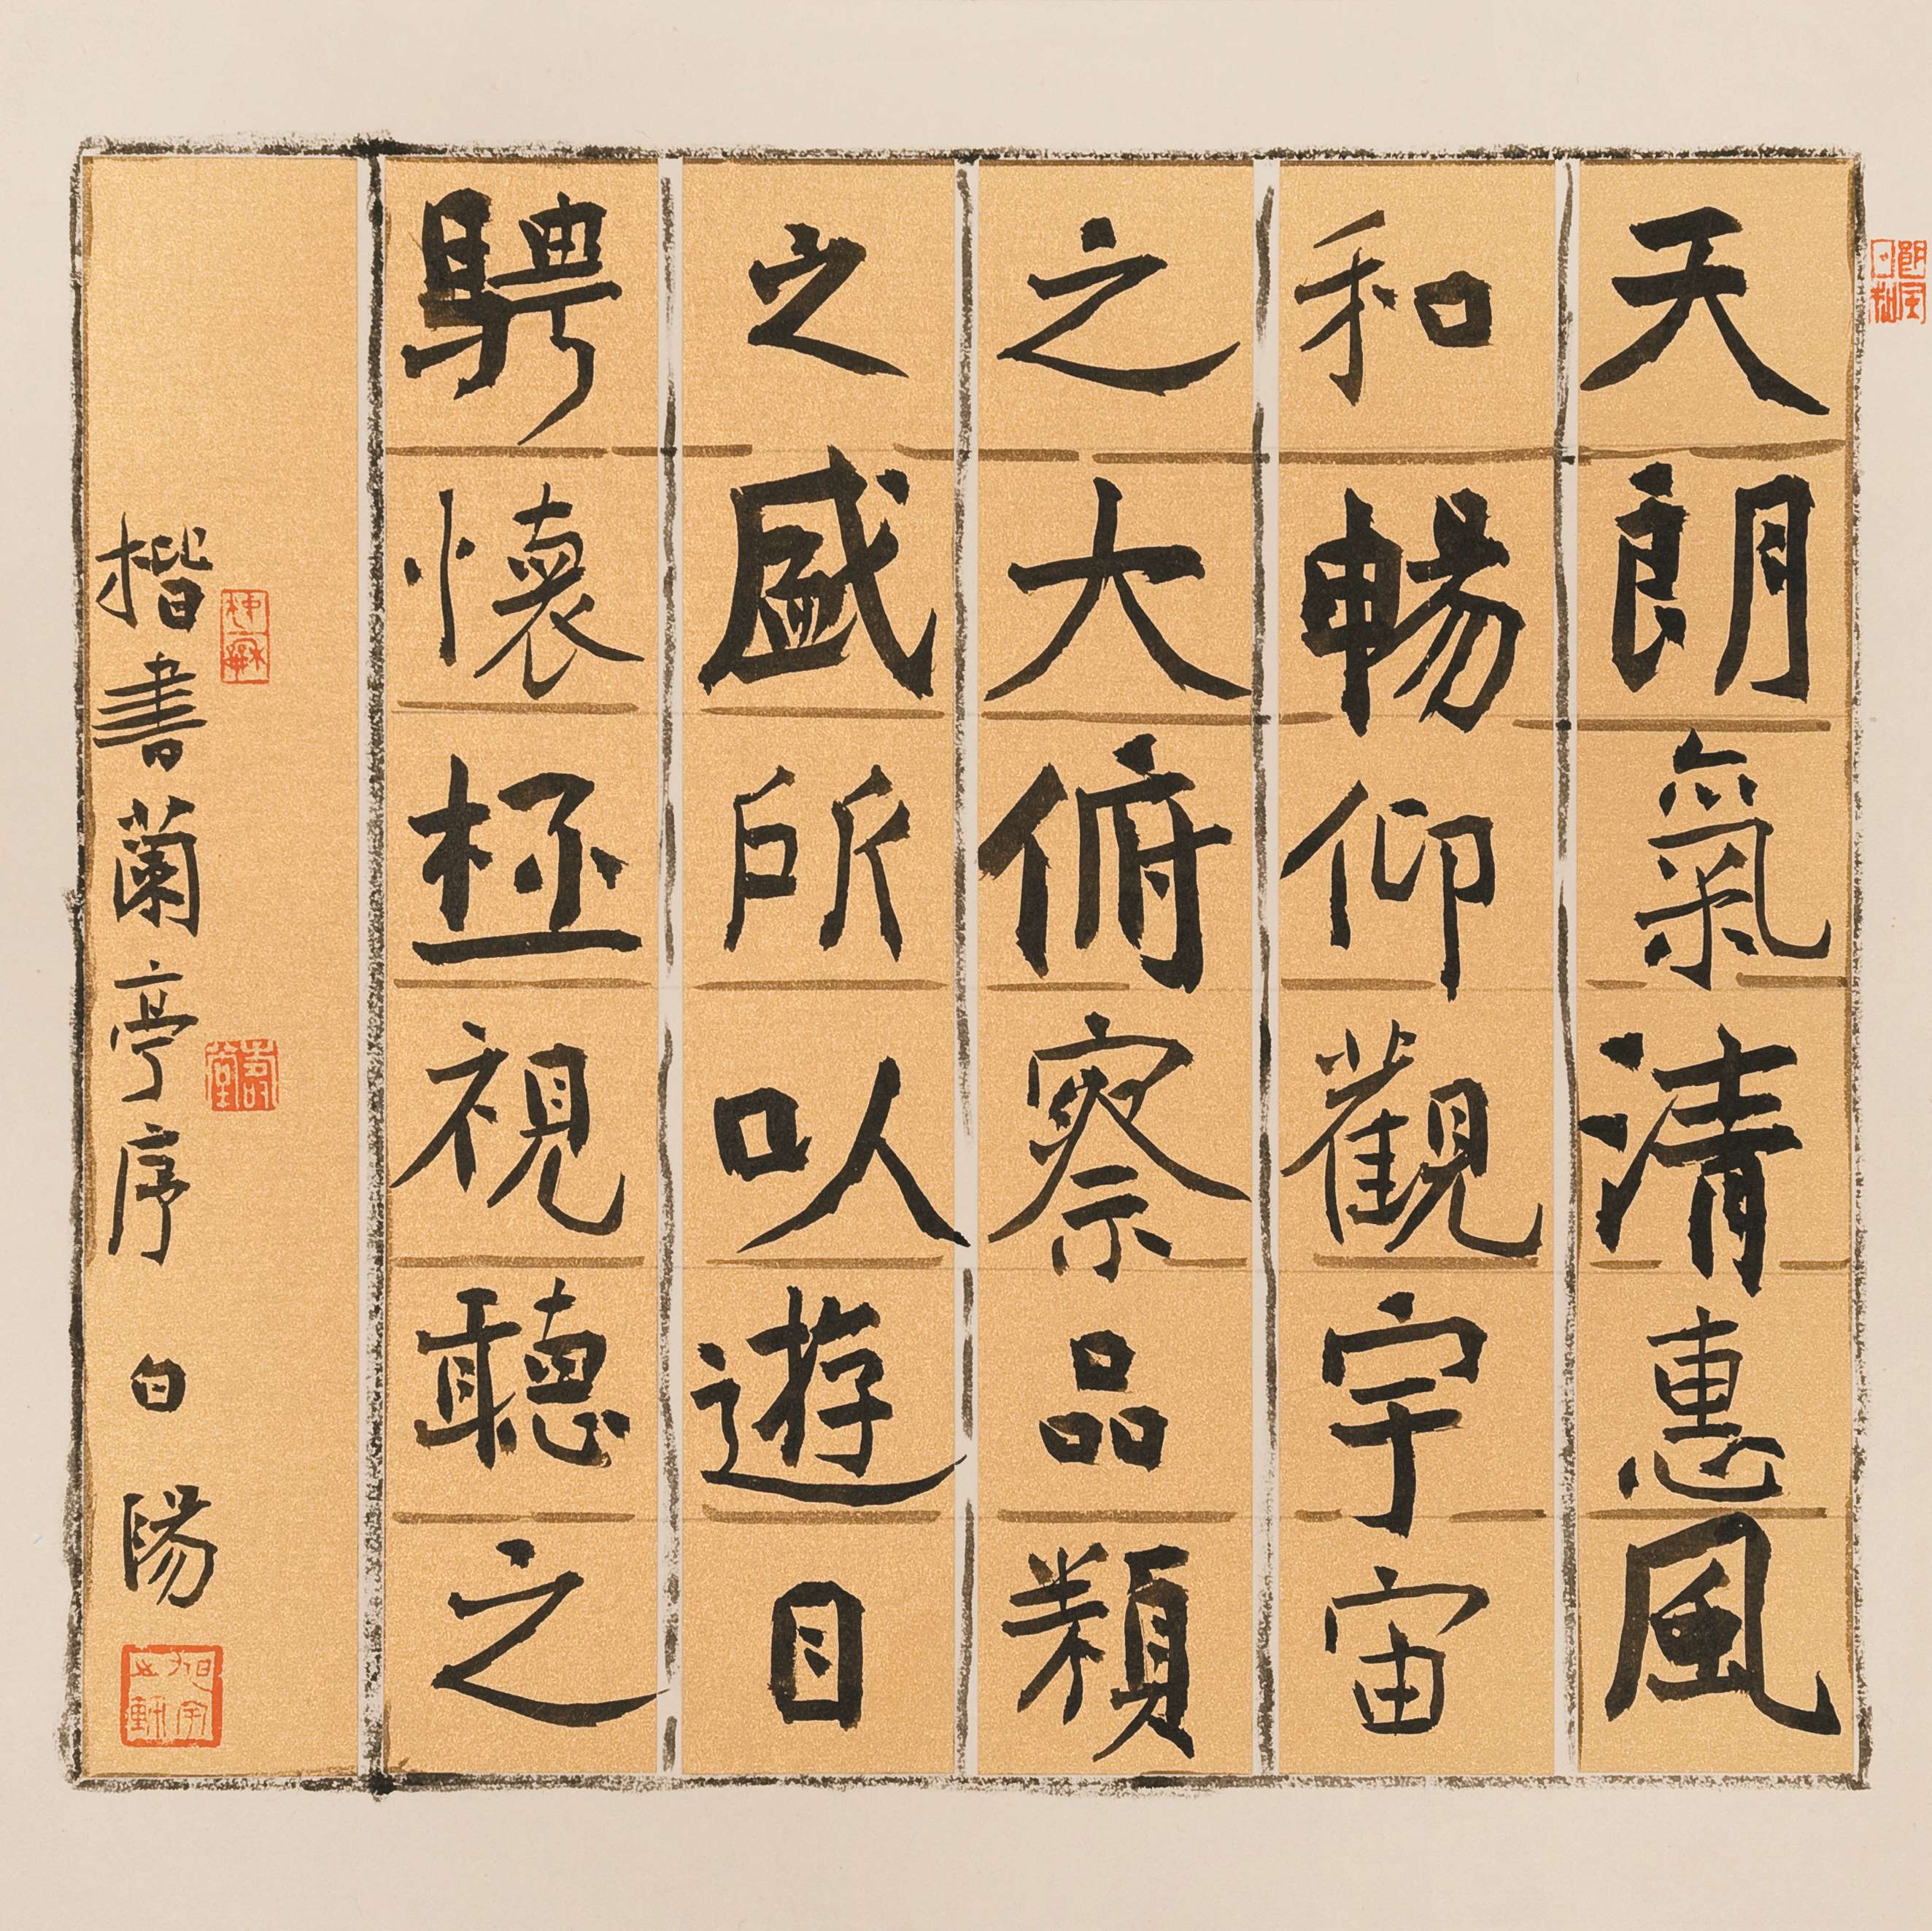 天朗氣清惠風
和暢仰觀宇宙
之大俯察品類
之盛所㕥遊目
騁懷極視聽之
楷書蘭亭序 白陽